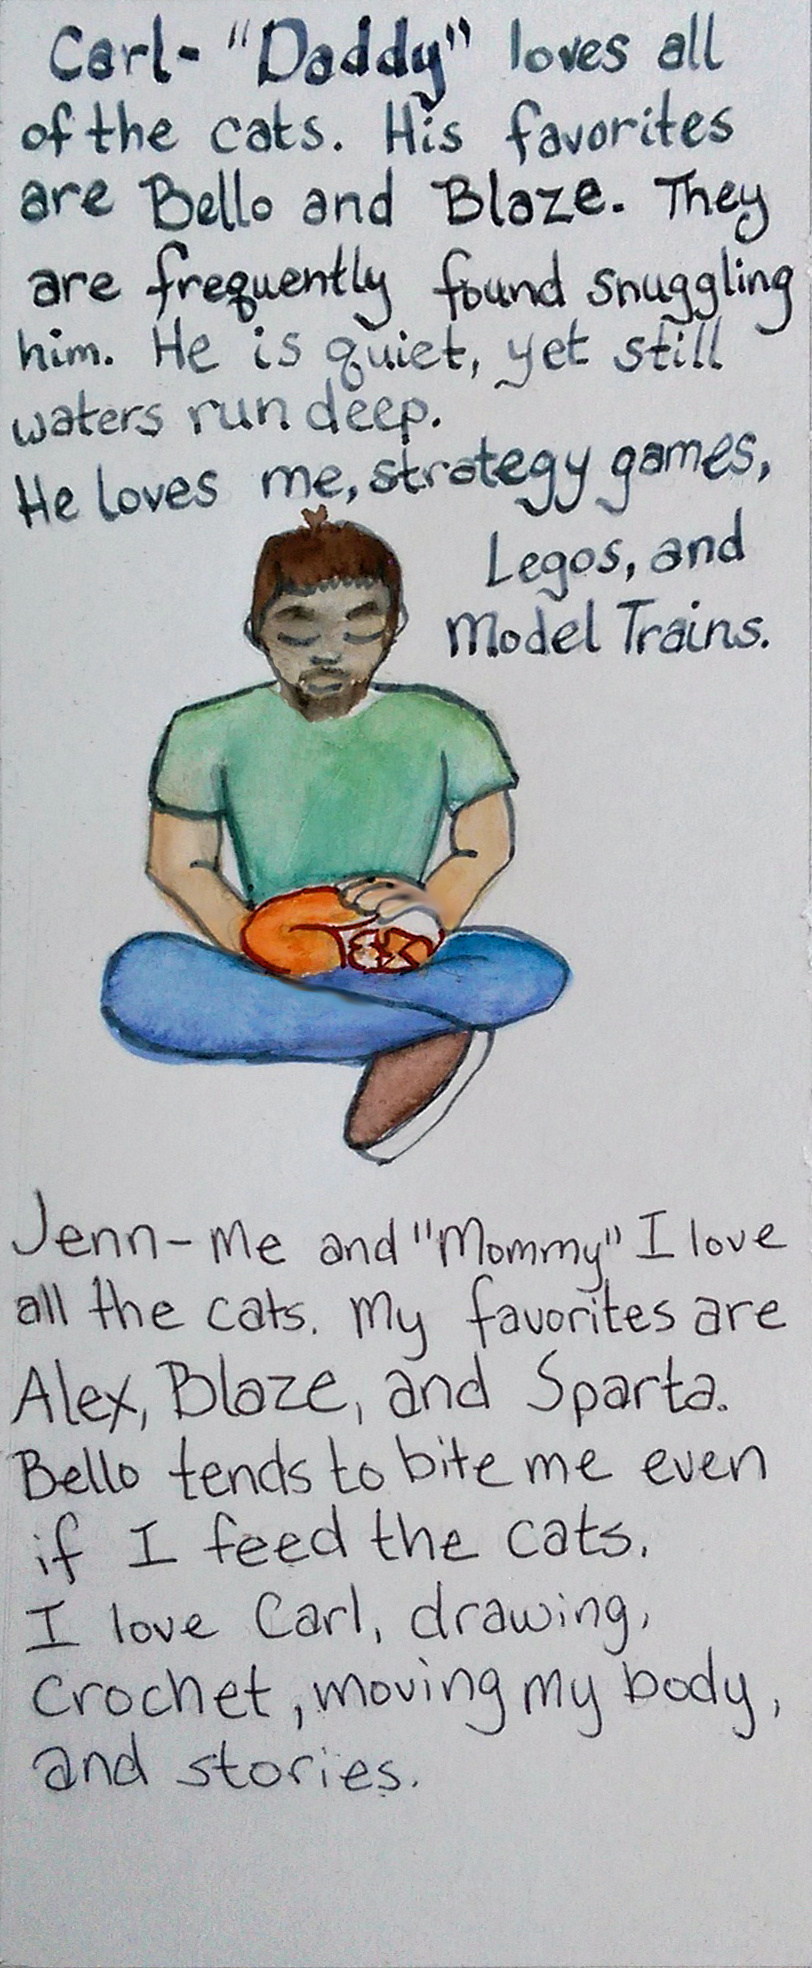 Carl- "Daddy" loves all
of the cats. His favorites
are Bello and Blaze. They
are frequently found snuggling
him. He is quiet, yet still
waters run deep.
He loves me, strategy games,
Legos, and
Model Trains.
Jenn-me and "Mommy" I love
all the cats. My favorites are
Alex, Blaze, and Sparta.
Bello tends to bite me even
if I feed the cats.
I love Carl, drawing,
Crochet, moving my body,
and stories.